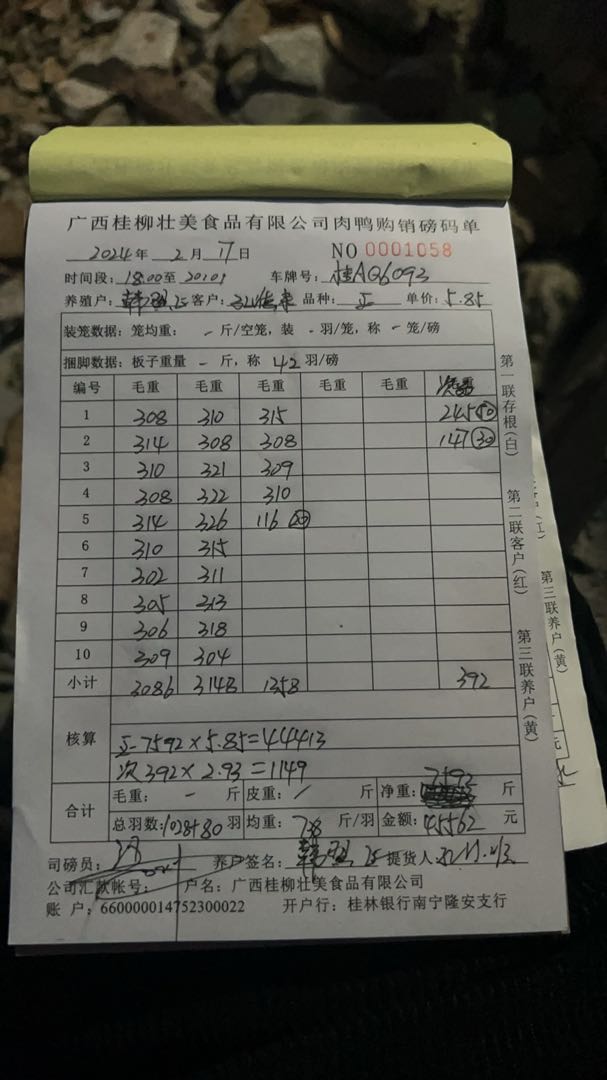 广西桂柳壮美食品有限公司肉鸭购销磅码单
2024年 2月 17日 NO 0001058
时间段: 18:00至 车牌号: 桂AQ6093
养殖户: 客户: 品种: 正 单价: 5.85
装笼数据: 笼均重: - 斤/空笼, 装 - 羽/笼, 称 - 笼/磅
捆脚数据: 板子重量 - 斤, 称 42 羽/磅
编号 毛重 毛重 毛重 毛重 毛重
1 308 310 315 245 50
2 314 308 308 147 30
3 310 321 309
4 308 322 310
5 314 326 116
6 310 315
7 302 311
8 305 313
9 306 318
10 309 304
小计 3086 3148 1358 392
核算
正 7592×5.85=44413
次 392×2.93=1149
合计 毛重: - 斤 皮重: / 斤 净重: 7592 斤
总羽数: 1028+80 羽 均重: 738 斤/羽 金额: 45562 元
司磅员: 养户签名: 提货人
公司汇款帐号: 户名: 广西桂柳壮美食品有限公司
账 户: 660000014752300022 开户行: 桂林银行南宁隆安支行
第一联存根(白)
第二联客户(红)
第三联养户(黄)
第三联养户(黄)
元